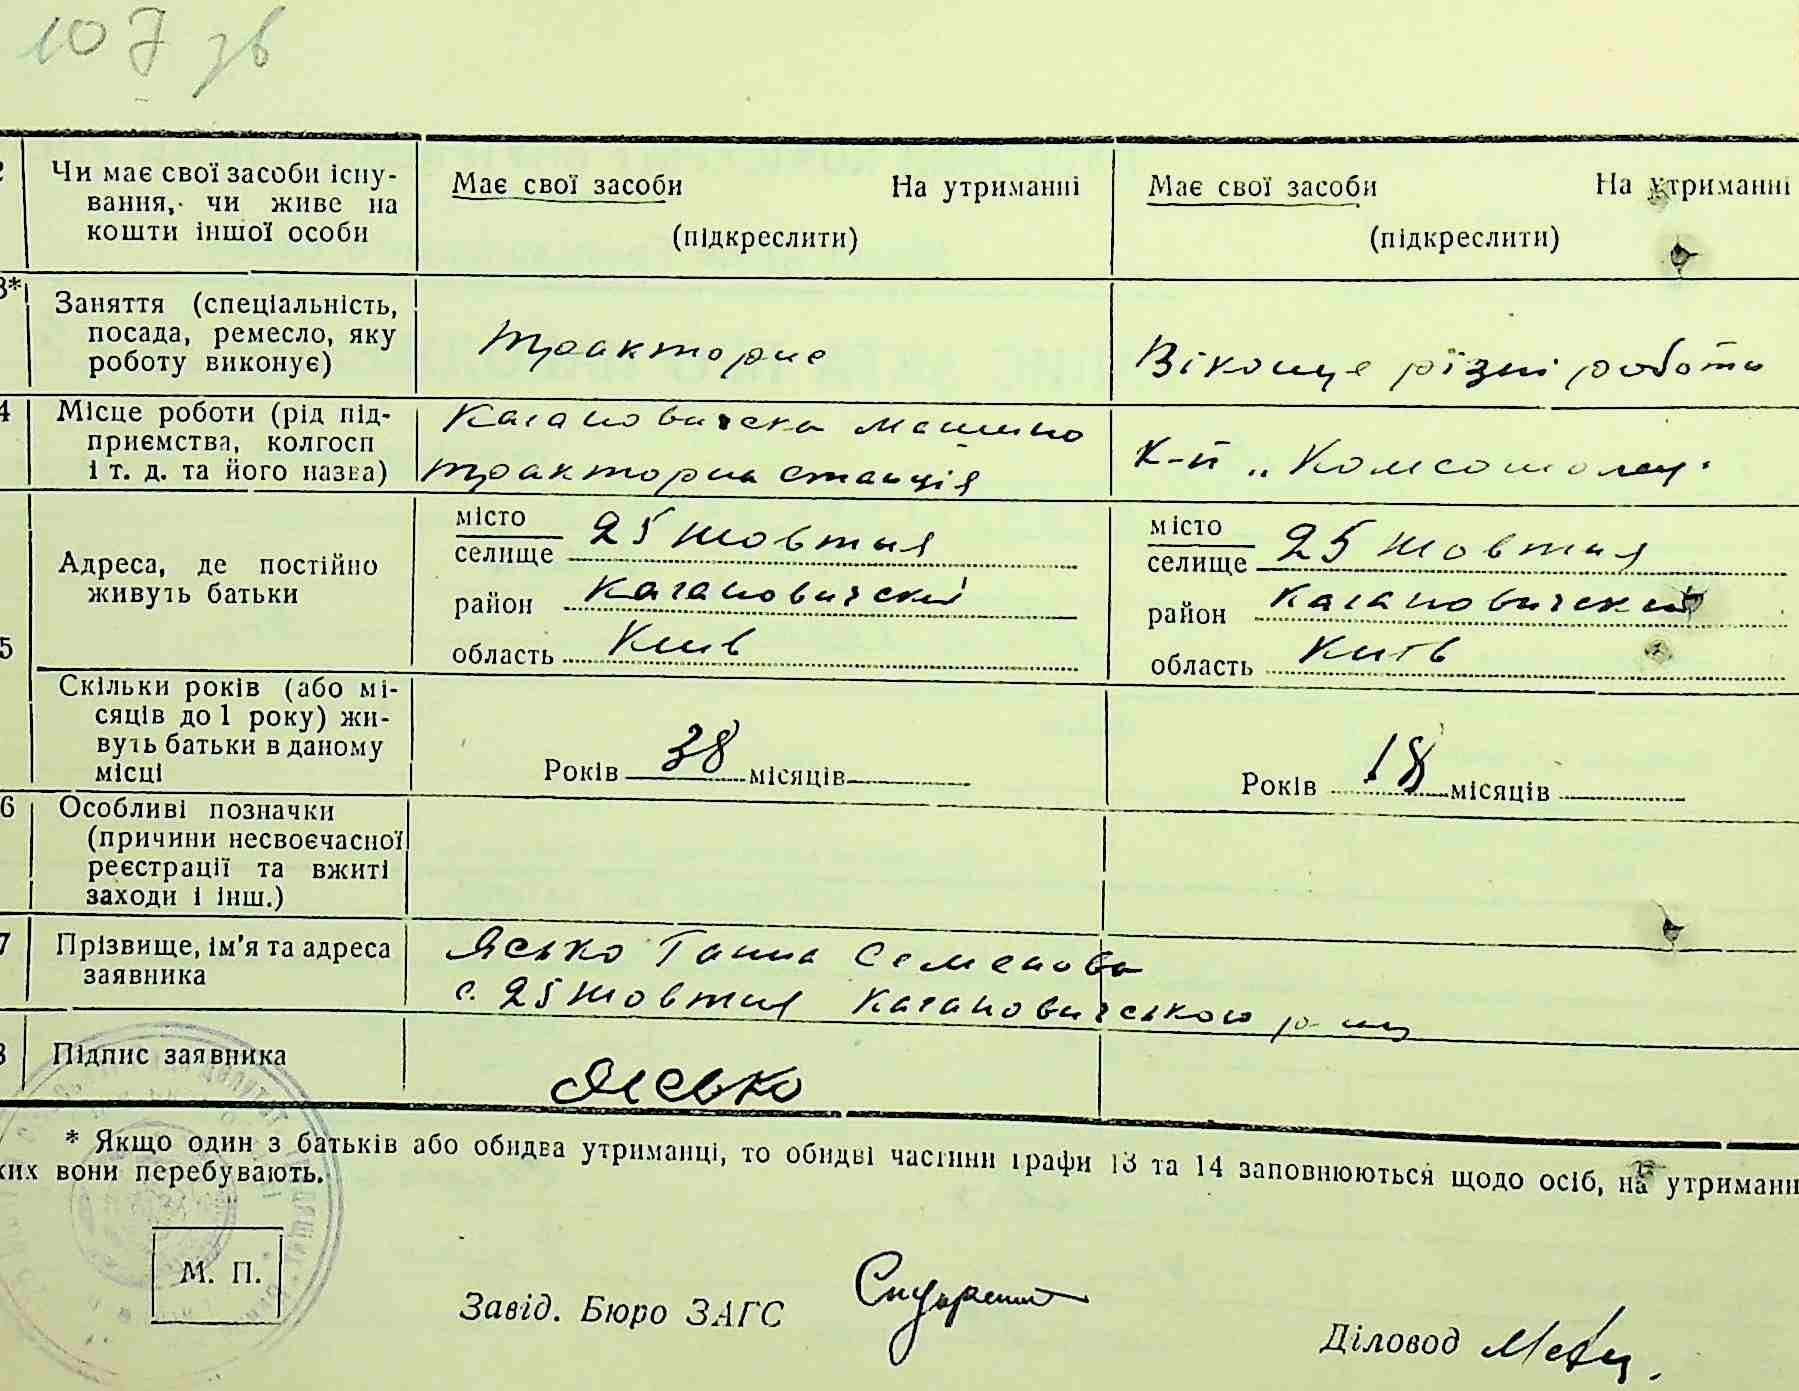 107 зв
2 Чи має свої засоби існу-
вання, чи живе на
кошти іншої особи
Має свої засоби На утриманні
(підкреслити)
Має свої засоби На утриманні
(підкреслити)
3* Заняття (спеціальність,
посада, ремесло, яку
роботу виконує)
Тракторис
Віконує різні роботи
4 Місце роботи (рід під-
приємства, колгосп
і т. д. та його назва)
Кагановичска машино
тракторна станція
К-п „Комсомолец"
5 Адреса, де постійно
живуть батьки
місто
селище 25 Жовтня
район Кагановичский
область Київ
місто
селище 25 Жовтня
район Кагановичский
область Київ
Скільки років (або мі-
сяців до 1 року) жи-
вуть батьки в даному
місці
Років 38 місяців
Років 18 місяців
6 Особливі позначки
(причини несвоєчасної
реєстрації та вжиті
заходи і інш.)
7 Прізвище, ім'я та адреса
заявника
Ясько Ганна Семенова
с. 25 Жовтня Кагановичського р-ну
8 Підпис заявника
Ясько
* Якщо один з батьків або обидва утриманці, то обидві частини графи 13 та 14 заповнюються щодо осіб, на утриманн
ких вони перебувають.
М. П.
Завід. Бюро ЗАГС
Діловод